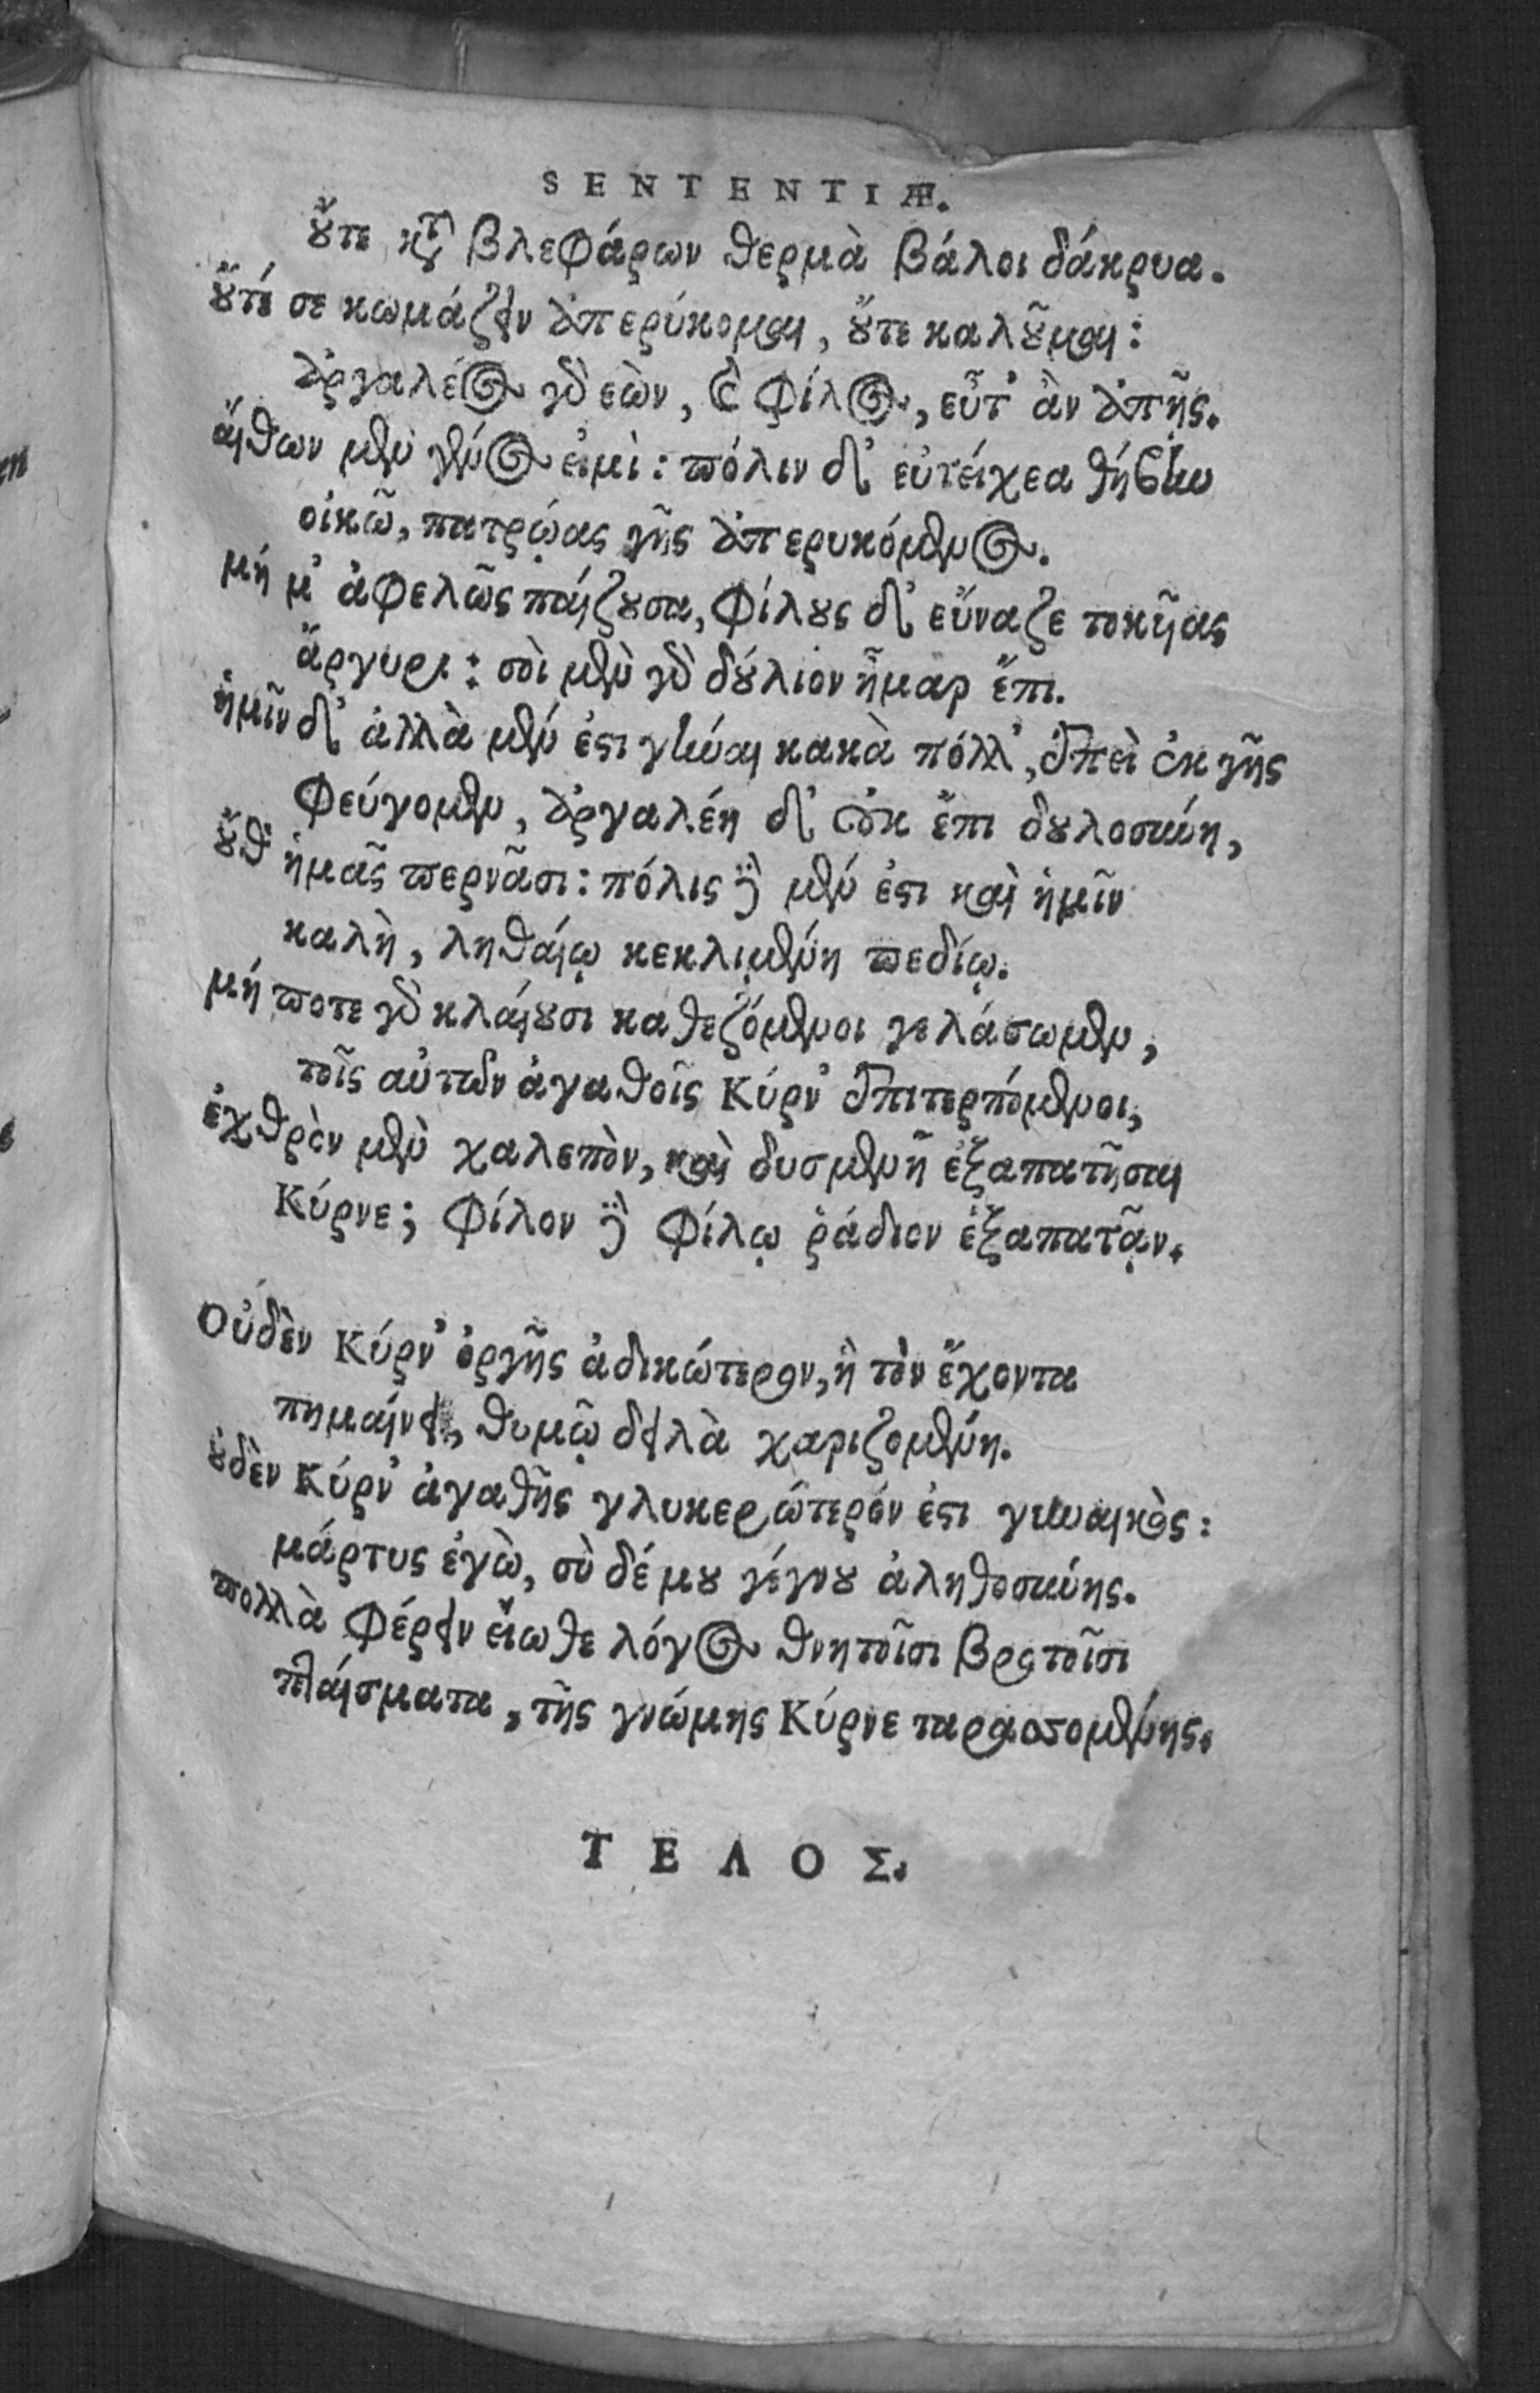 SENTENTIÆ.
ȣ̓́τε κατὰ βλεφάρων θερμὰ βάλοι δάκρυα.
ȣ̓́τέ σε κωμάζειν ἀπερύκομαι, ȣ̓́τε καλȣ͂μαι:
ἀργαλέος γὰρ ἐὼν, ὦ φίλος, εὖτ' ἂν ἀπῇς.
αἴθων μὲν γένος εἰμὶ: πόλιν δ' εὐτείχεα θήβην
οἰκῶ, πατρῴας γῆς ἀπερυκόμενος.
μή μ' ἀφελῶς παίζȣσα, φίλȣς δ' εὔναζε τοκῆας
ἄργυρι: σοὶ μὲν γὰρ δȣ́λιον ἦμαρ ἔπι.
ἡμῖν δ' ἀλλὰ μέν ἐστι γύναι κακὰ πόλλ', ἐπεὶ ἐκ γῆς
φεύγομεν, ἀργαλέη δ' οὐκ ἔπι δȣλοσύνη,
ȣ̓́θ' ἡμᾶς περνᾶσι: πόλις γε μέν ἐστι καὶ ἡμῖν
καλὴ, ληθαίῳ κεκλιμένη πεδίῳ.
μή ποτε γὰρ κλαίȣσι καθεζόμενοι γελάσωμεν,
τοῖς αὐτῶν ἀγαθοῖς Κύρν' ἐπιτερπόμενοι,
ἐχθρὸν μὲν χαλεπὸν, καὶ δυσμενῆ ἐξαπατῆσαι
Κύρνε; φίλον δὲ φίλῳ ῥάδιον ἐξαπατᾷν.
Οὐδὲν Κύρν' ὀργῆς ἀδικώτερον, ἣ τὸν ἔχοντα
πημαίνει, θυμῷ δειλὰ χαριζομένη.
ȣ̓δὲν Κύρν' ἀγαθῆς γλυκερώτερόν ἐστι γυναικὸς:
μάρτυς ἐγὼ, σὺ δέ μȣ γέγνȣ ἀληθοσύνης.
πολλὰ φέρειν εἴωθε λόγος θνητοῖσι βροτοῖσι
πλαίσματα, τῆς γνώμης Κύρνε ταρασσομένης.
ΤΕΛΟΣ.